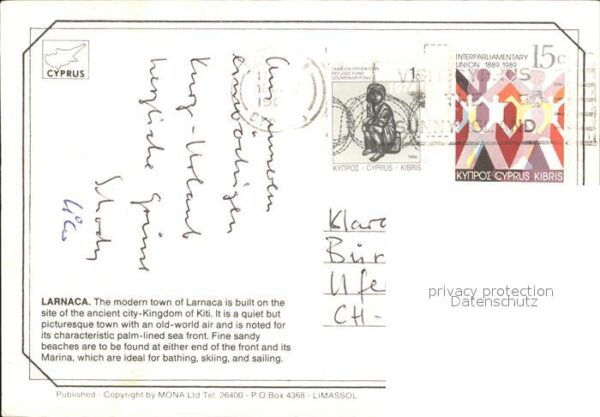 CYPRUS
Aus unserem
einwöchigen
Kurz-Urlaub
herzliche Grüsse
REFUGEE FUND
1c
ΚΥΠΡΟΣ - CYPRUS - KIBRIS
1988
INTERPARLIAMENTARY
UNION 1889, 1989
15c
ΚΥΠΡΟΣ CYPRUS KIBRIS
VISIT CYPRUS
SUNNY ISLAND
Klara
Bür
Ufe
CH-
privacy protection
Datenschutz
LARNACA. The modern town of Larnaca is built on the
site of the ancient city-Kingdom of Kiti. It is a quiet but
picturesque town with an old-world air and is noted for
its characteristic palm-lined sea front. Fine sandy
beaches are to be found at either end of the front and its
Marina, which are ideal for bathing, skiing, and sailing.
Published - Copyright by MONA Ltd Tel. 26400 - P.O Box 4368 - LIMASSOL